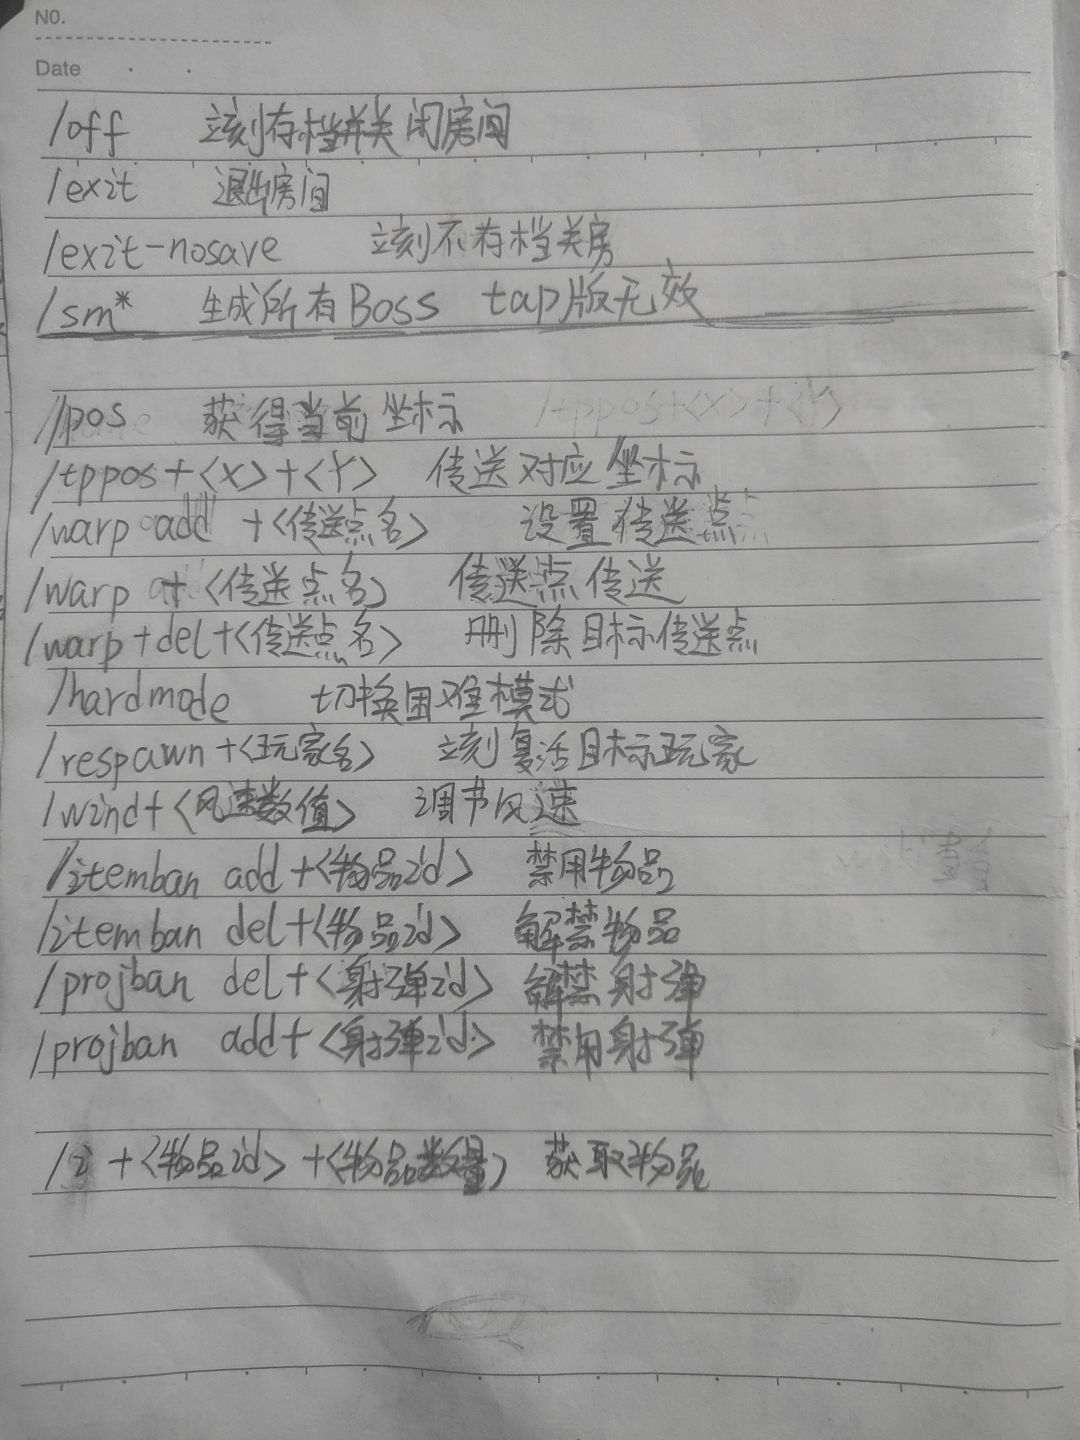 NO.
Date
/off 立刻存档并关闭房间
/exit 退出房间
/exit-nosave 立刻不存档关房
/sm* 生成所有Boss tap版无效
/pos 获得当前坐标 /tppos+<X>+<Y>
/tppos+<X>+<Y> 传送对应坐标
/warp add +<传送点名> 设置传送点
/warp +<传送点名> 传送点传送
/warp+del+<传送点名> 删除目标传送点
/hardmode 切换困难模式
/respawn+<玩家名> 立刻复活目标玩家
/wind+<风速数值> 调节风速
/itemban add+<物品id> 禁用物品
/itemban del+<物品id> 解禁物品
/projban del+<射弹id> 解禁射弹
/projban add+<射弹id> 禁用射弹
/i +<物品id> +<物品数量> 获取物品